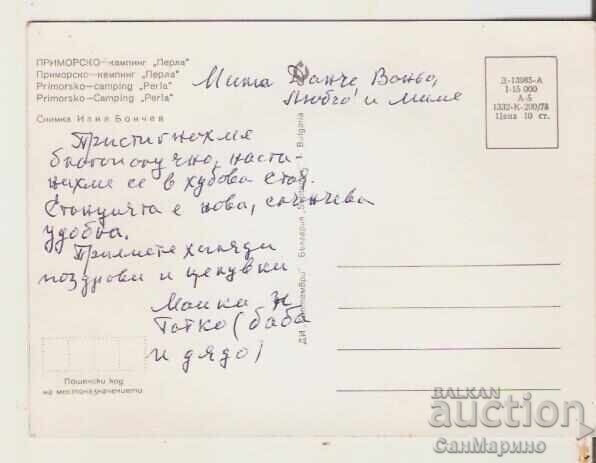 ПРИМОРСКО—кемпинг „Перла"
Приморско—кемпинг „Перла"
Primorsko—camping „Perla"
Primorsko—Camping „Perla"
Снимка Илия Бончев
Мита Данче Ваньо,
Любчо и Миме
Пристигнахме
благополучно, наста-
нихме се в хубова стая.
Станцията е нова, слънчева
удобна.
Приемете хиляди
поздрови и целувки
Майка и
Татко (баба
и дядо)
Д-13985-А
I-15 000
А-5
1332-К-200/78
Цена 10 ст.
ДИ „Септември" България „Septemvri" Bulgaria
Пощенски код
на местоназначението
BALKAN
auction
СанМарино